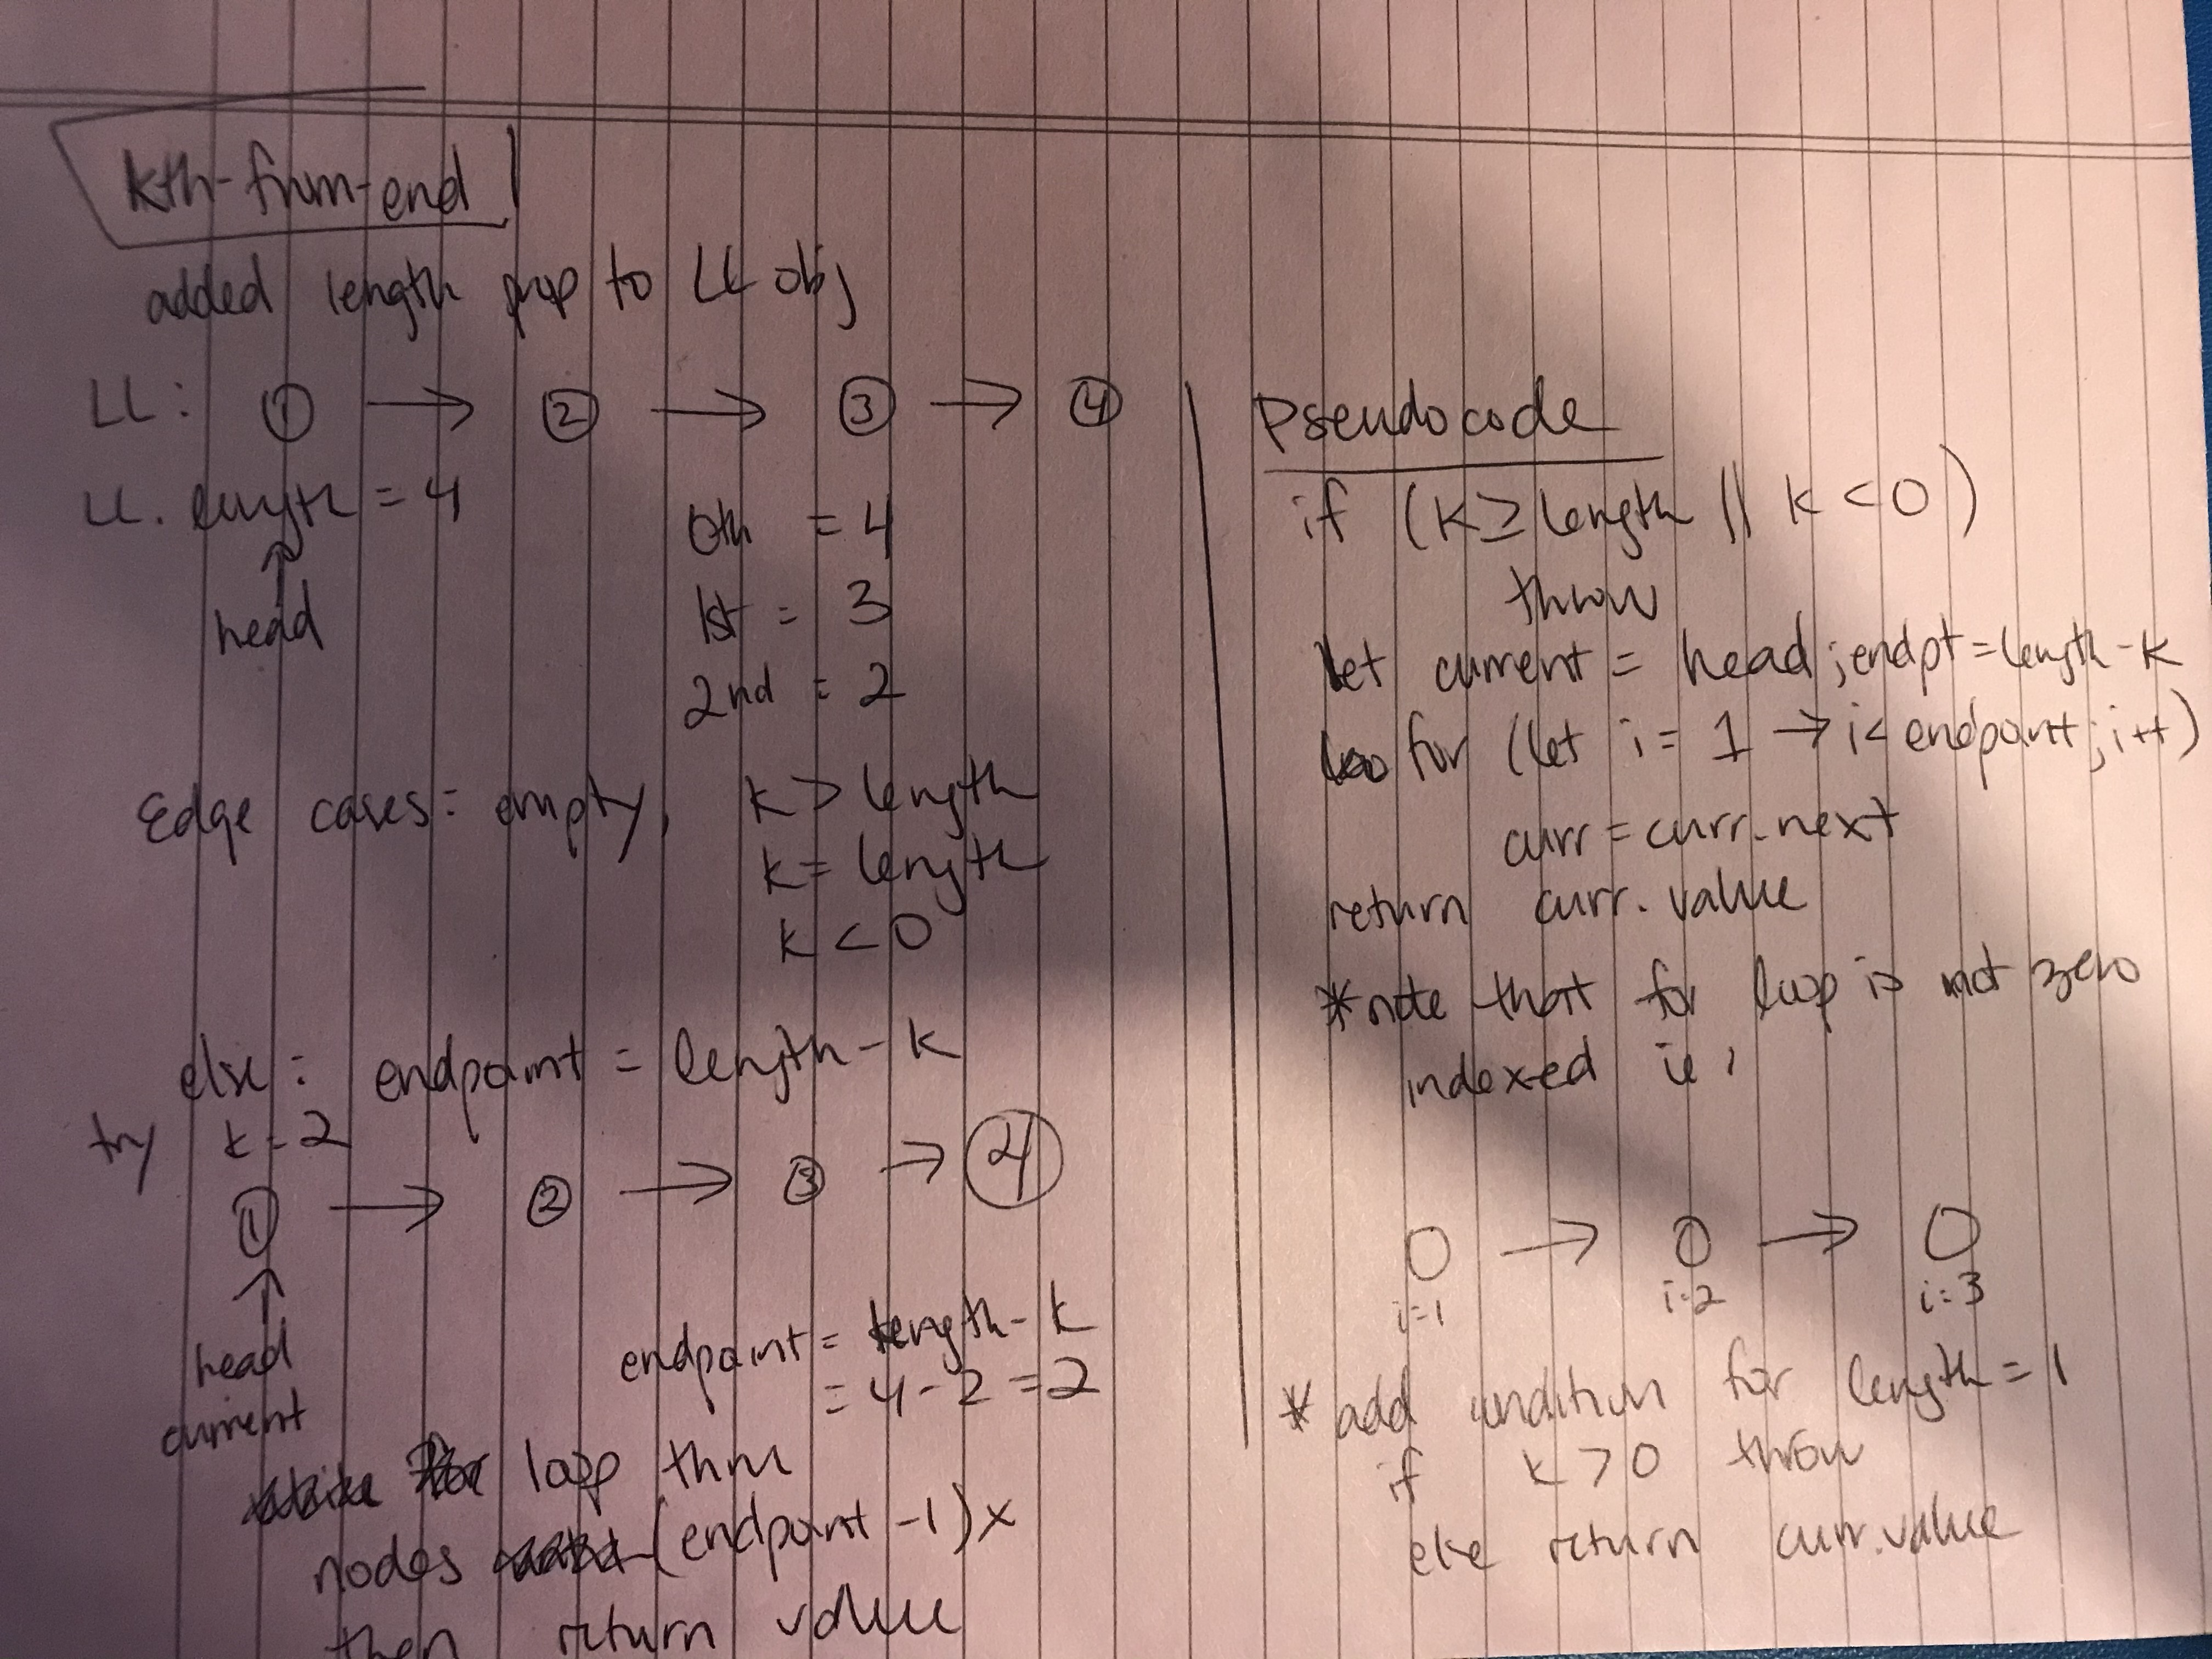 kth-from-end
added length prop to LL obj
LL: 1 → 2 → 3 → 4
LL. length = 4
head
0th = 4
1st = 3
2nd = 2
Edge cases: empty, k > length
k = length
k < 0
else: endpoint = length - k
try k = 2
1 → 2 → 3 → 4
head
current
endpoint = length - k
= 4 - 2 = 2
for loop thru
nodes (endpoint -1)x
then return value
Pseudocode
if (k ≥ length || k < 0)
throw
let current = head; endpt = length - k
for (let i = 1 → i < endpoint; i++)
curr = curr.next
return curr.value
*note that for loop is not zero
indexed ie,
O → O → O
i=1 i=2 i=3
* add condition for length = 1
if k > 0 throw
else return curr.value